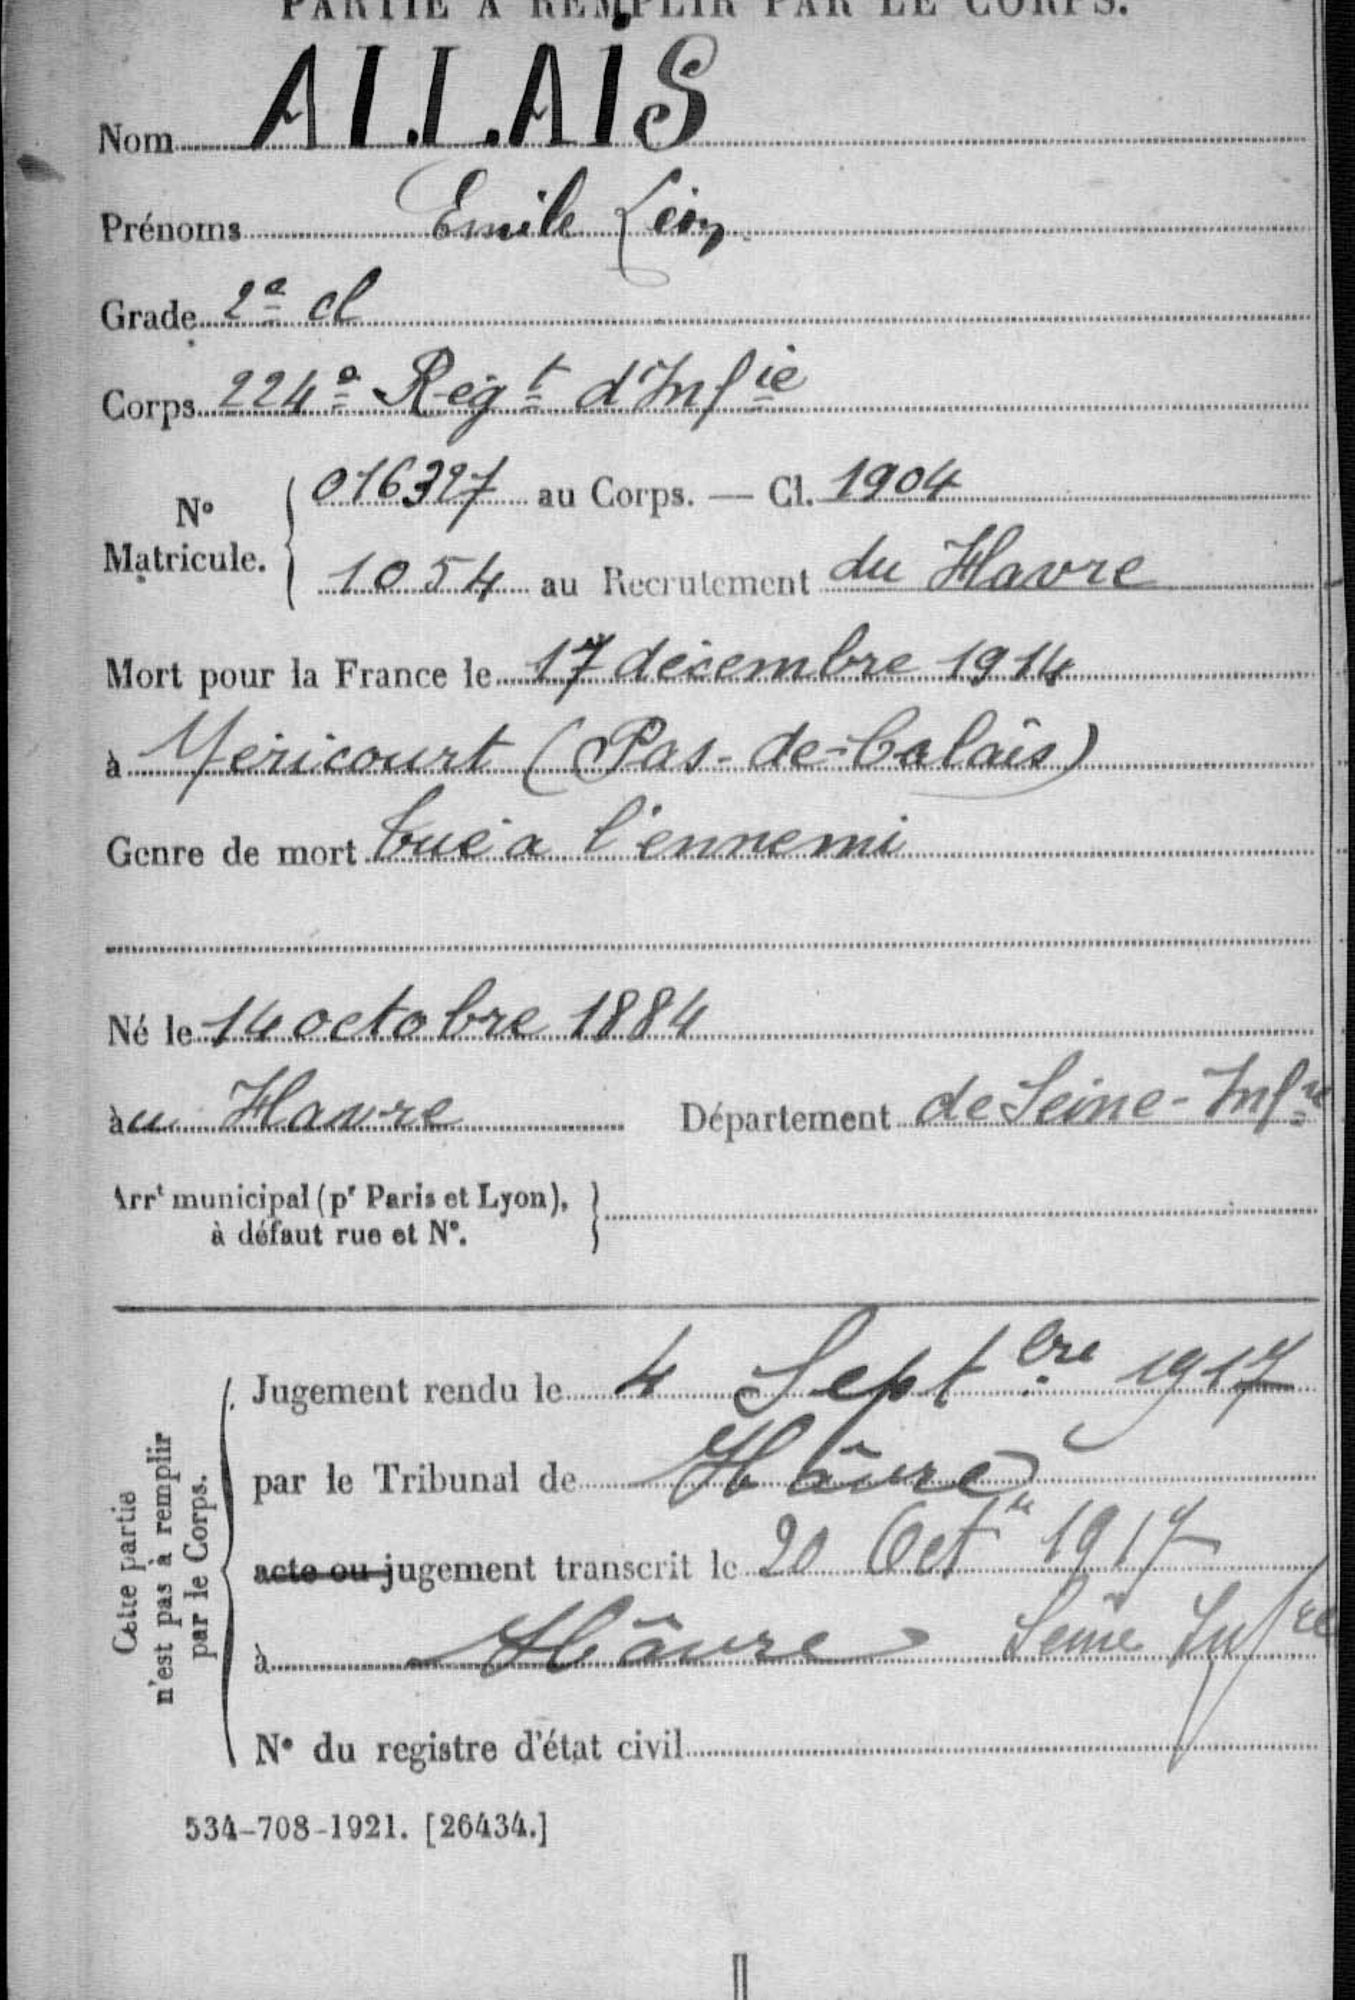 PARTIE A REMPLIR PAR LE CORPS.
Nom ALLAIS
Prénoms Emile Léon
Grade 2e cl
Corps 224e Régt d'Infie
No Matricule. { 016327 au Corps. — Cl. 1904
1054 au Recrutement du Havre
Mort pour la France le 17 décembre 1914
à Méricourt (Pas-de-Calais)
Genre de mort tué à l'ennemi
Né le 14 octobre 1884
au Havre Département de Seine-Infre
Arrt municipal (pr Paris et Lyon),
à défaut rue et No. }
Cette partie
n'est pas à remplir
par le Corps.
Jugement rendu le 4 Septbre 1917
par le Tribunal de Hâvre
acte ou jugement transcrit le 20 Octre 1917
à Hâvre Seine Infre
No du registre d'état civil
534-708-1921. [26434.]